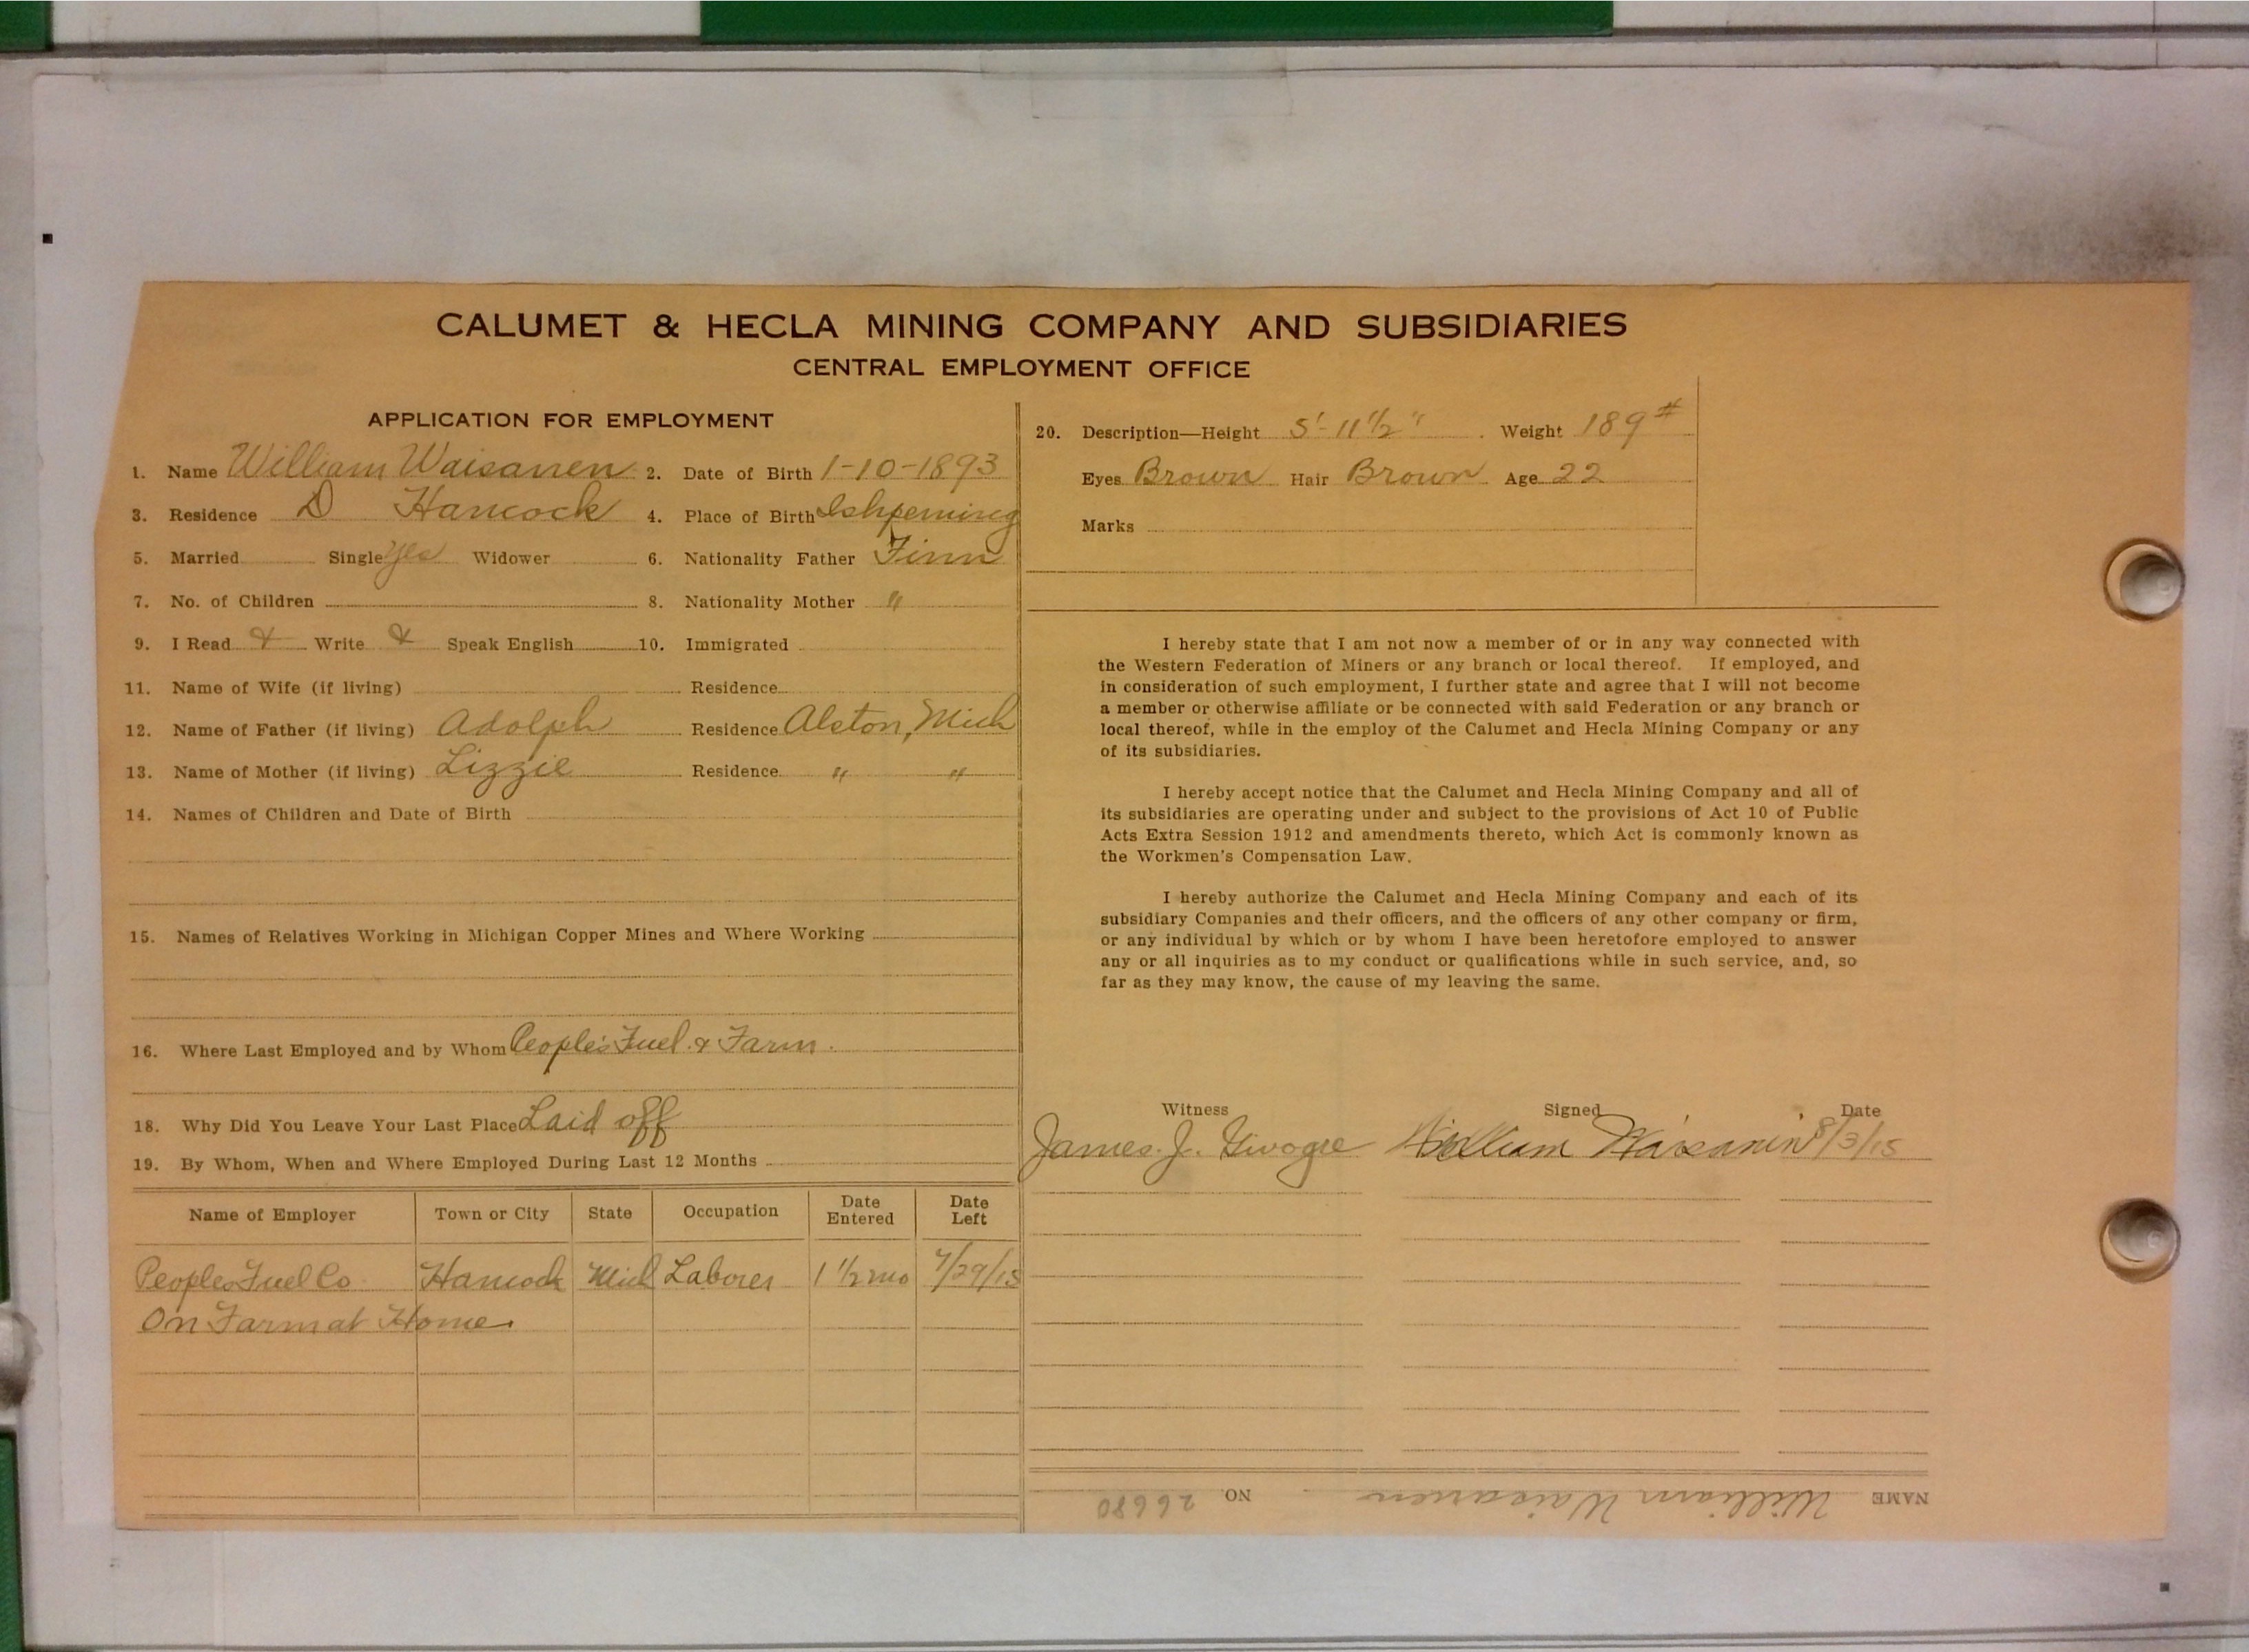 CALUMET & HECLA MINING COMPANY AND SUBSIDIARIES
CENTRAL EMPLOYMENT OFFICE
APPLICATION FOR EMPLOYMENT
1. Name William Waisanen 2. Date of Birth 1-10-1893
3. Residence D Hancock 4. Place of Birth Ishpeming
5. Married Single yes Widower 6. Nationality Father Finn
7. No. of Children 8. Nationality Mother "
9. I Read & Write & Speak English 10. Immigrated
11. Name of Wife (if living) Residence
12. Name of Father (if living) Adolph Residence Alston, Mich
13. Name of Mother (if living) Lizzie Residence " "
14. Names of Children and Date of Birth
15. Names of Relatives Working in Michigan Copper Mines and Where Working
16. Where Last Employed and by Whom People's Fuel & Farm.
18. Why Did You Leave Your Last Place Laid off
19. By Whom, When and Where Employed During Last 12 Months
Name of Employer Town or City State Occupation Date Entered Date Left
Peoples Fuel Co Hancock Mich Laborer 1 1/2 mo 7/29/15
On Farm at Home.
20. Description—Height 5'-11 1/2" Weight 189#
Eyes Brown Hair Brown Age 22
Marks
I hereby state that I am not now a member of or in any way connected with
the Western Federation of Miners or any branch or local thereof. If employed, and
in consideration of such employment, I further state and agree that I will not become
a member or otherwise affiliate or be connected with said Federation or any branch or
local thereof, while in the employ of the Calumet and Hecla Mining Company or any
of its subsidiaries.
I hereby accept notice that the Calumet and Hecla Mining Company and all of
its subsidiaries are operating under and subject to the provisions of Act 10 of Public
Acts Extra Session 1912 and amendments thereto, which Act is commonly known as
the Workmen's Compensation Law.
I hereby authorize the Calumet and Hecla Mining Company and each of its
subsidiary Companies and their officers, and the officers of any other company or firm,
or any individual by which or by whom I have been heretofore employed to answer
any or all inquiries as to my conduct or qualifications while in such service, and, so
far as they may know, the cause of my leaving the same.
Witness Signed Date
James. J. William Waisanen 8/3/15
NAME William Waisanen NO. 26680